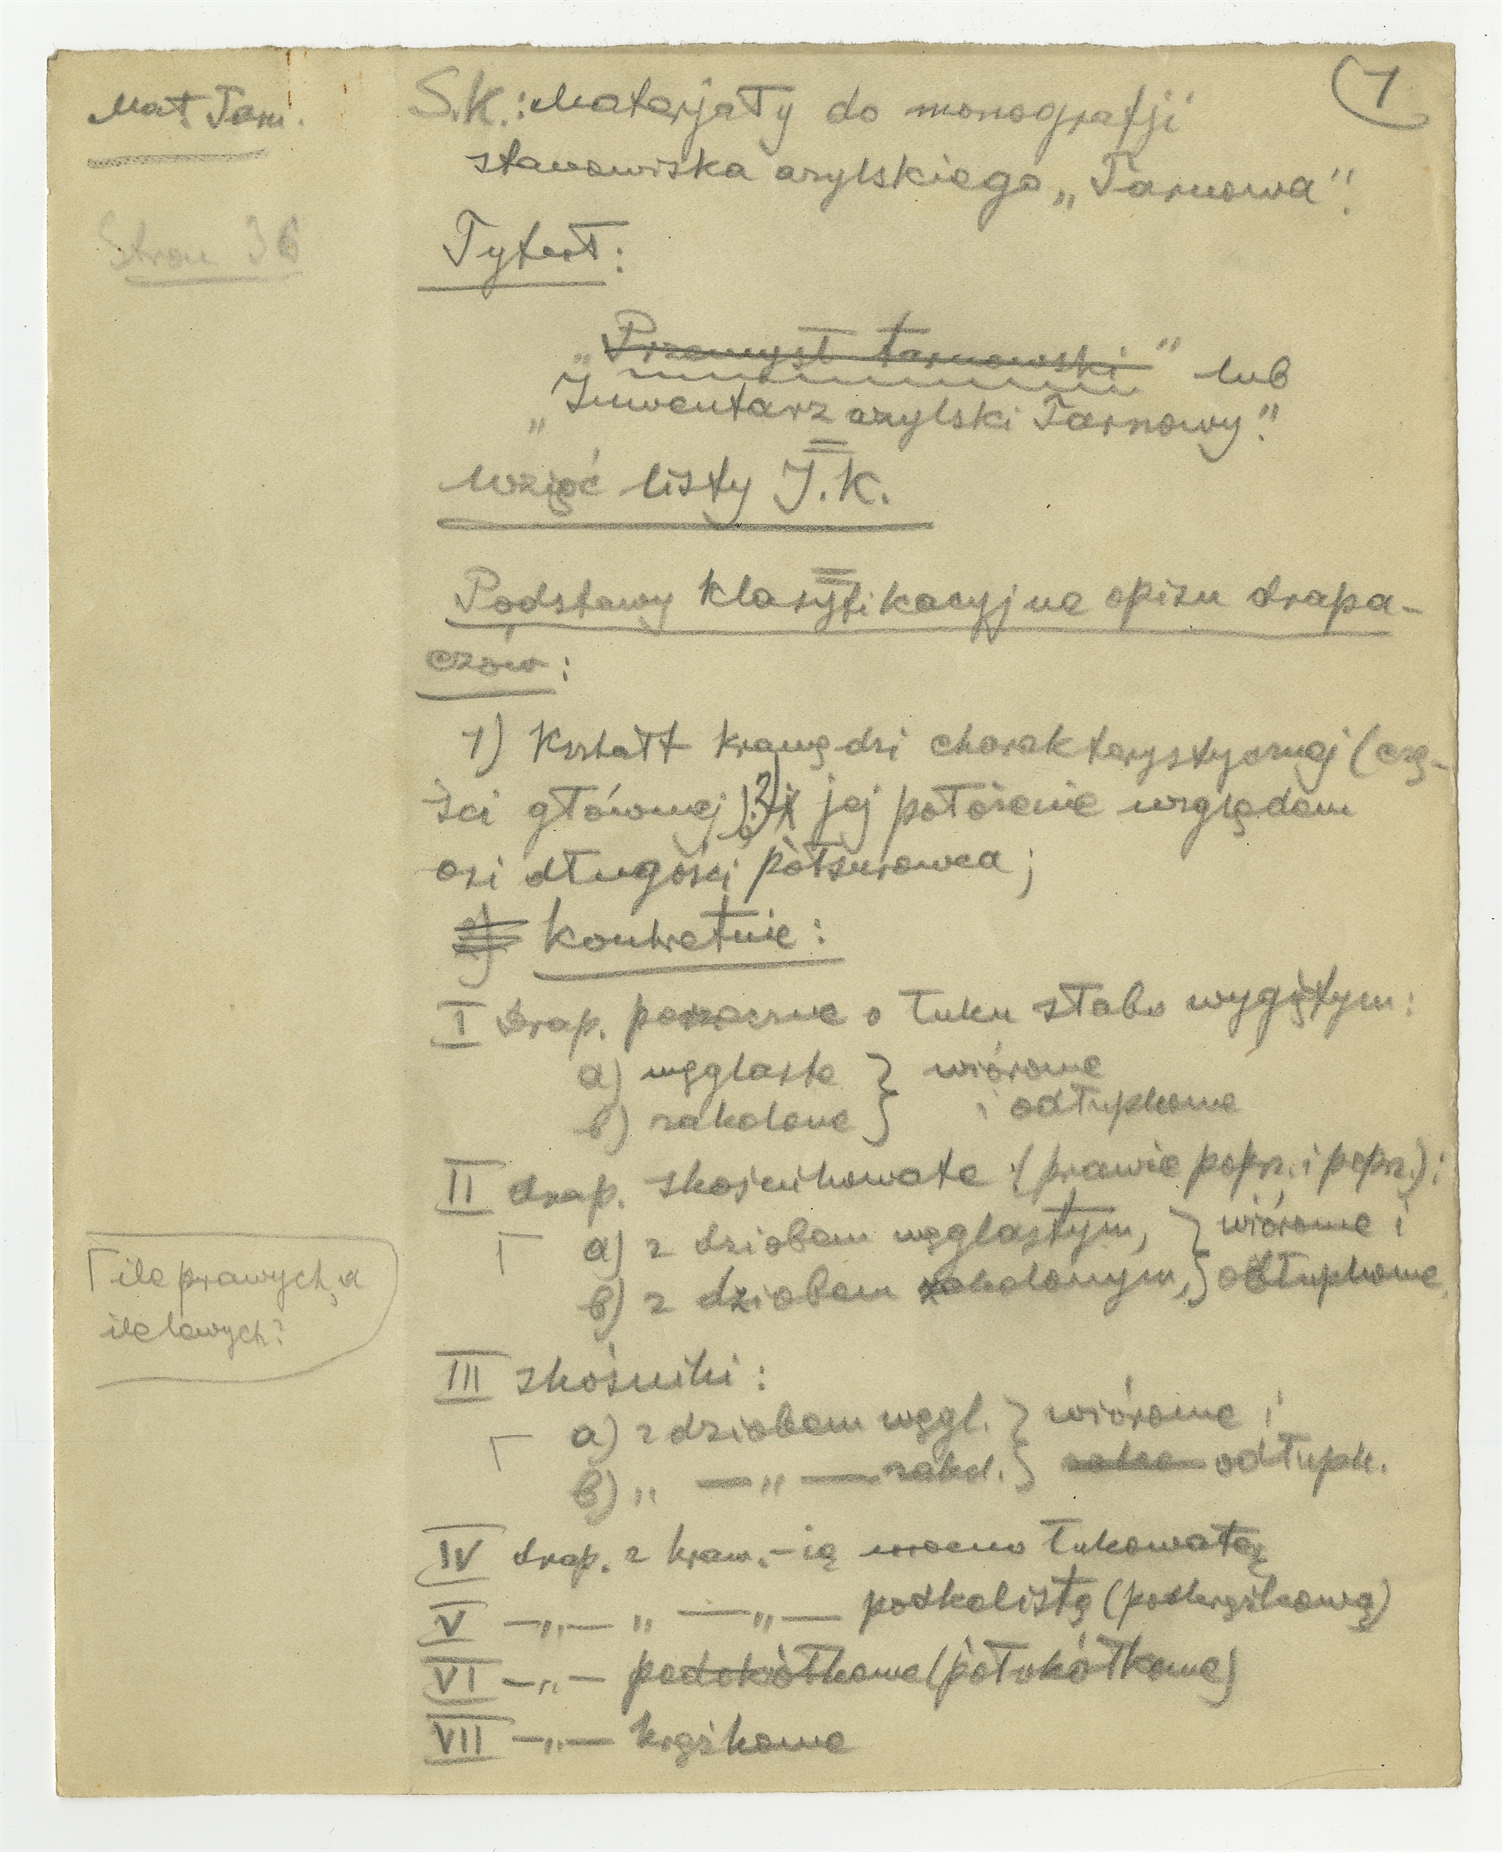 Mat. Tarn.
Stron 36
1
S.K.: Materjały do monografji
stanowiska azylskiego „Tarnowa”.
Tytuł:
„Przemysł tarnowski” lub
„Inwentarz azylski Tarnowy”.
Wziąć listy J.K.
Podstawy klasyfikacyjne opisu drapa-
czów:
1) Kształt krawędzi charakterystycznej (czę-
ści głównej); 2) jej położenie względem
osi długości półsurowca;
2) Konkretnie:
I drap. poprzeczne o łuku słabo wygiętym:
a) węglaste } wiórowe
b) zakolone } i odłupkowe
II drap. skośnikowate (prawie poprz. i poprz.):
Γ a) z dziobem węglastym, } wiórowe i
b) z dziobem zakolonym, } odłupkowe.
Γ ile prawych, a
ile lewych?
III skośniki:
Γ a) z dziobem węgl. } wiórowe i
b) „ —„— zakol. } odłupk.
IV drap. z kraw.-ią mocno łukowatą
V —„— „ —„— podkolistą (podkrążkową)
VI —„— podokółkowe (półokółkowe)
VII —„— krążkowe